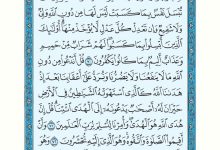 تُبْسَلَ نَفْسٌ بِمَا كَسَبَتْ لَيْسَ لَهَا مِن دُونِ ٱللَّهِ وَلِىٌّ
وَلَا شَفِيعٌ وَإِن تَعْدِلْ كُلَّ عَدْلٍ لَّا يُؤْخَذْ مِنْهَآ أُو۟لَٰٓئِكَ
ٱلَّذِينَ أُبْسِلُوا۟ بِمَا كَسَبُوا۟ لَهُمْ شَرَابٌ مِّنْ حَمِيمٍ
وَعَذَابٌ أَلِيمٌۢ بِمَا كَانُوا۟ يَكْفُرُونَ ٧٠ قُلْ أَنَدْعُوا۟ مِن دُونِ
ٱللَّهِ مَا لَا يَنفَعُنَا وَلَا يَضُرُّنَا وَنُرَدُّ عَلَىٰٓ أَعْقَابِنَا بَعْدَ إِذْ
هَدَىٰنَا ٱللَّهُ كَٱلَّذِى ٱسْتَهْوَتْهُ ٱلشَّيَٰطِينُ فِى ٱلْأَرْضِ
حَيْرَانَ لَهُۥٓ أَصْحَٰبٌ يَدْعُونَهُۥٓ إِلَى ٱلْهُدَى ٱئْتِنَا قُلْ إِنَّ
هُدَى ٱللَّهِ هُوَ ٱلْهُدَىٰ وَأُمِرْنَا لِنُسْلِمَ لِرَبِّ ٱلْعَٰلَمِينَ ٧١ وَأَنْ
أَقِيمُوا۟ ٱلصَّلَوٰةَ وَٱتَّقُوهُ وَهُوَ ٱلَّذِىٓ إِلَيْهِ تُحْشَرُونَ ٧٢ وَهُوَ